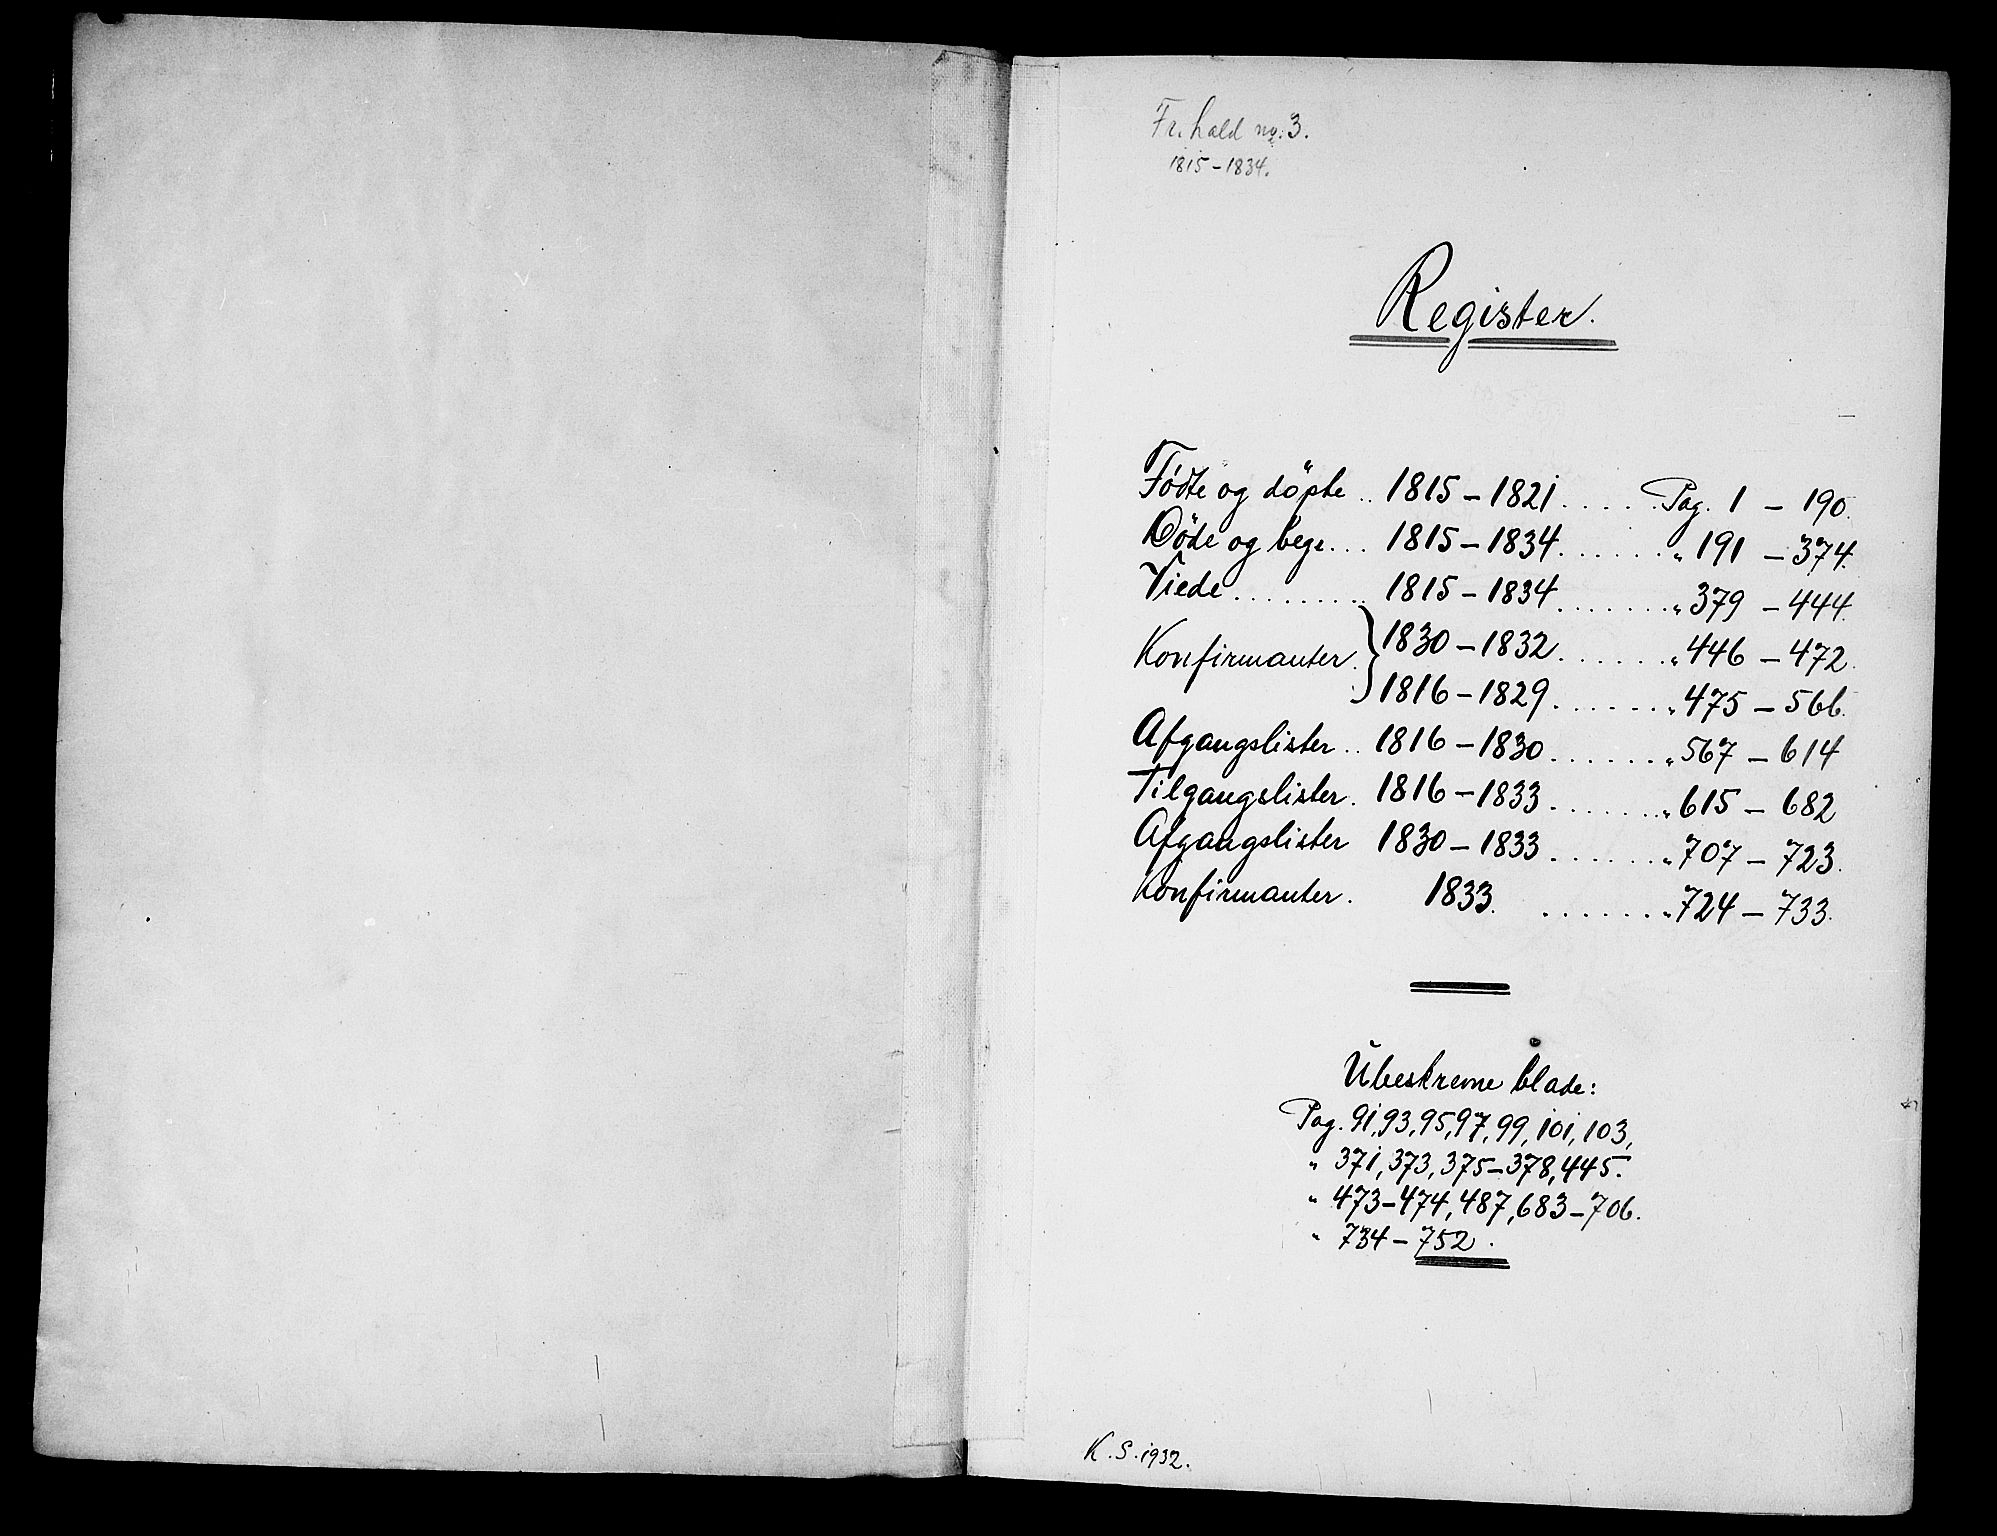 Fr.hald no: 3.
1815-1834.
Register.
Födte og döpte .. 1815-1821 ..... Pag. 1 - 190.
Döde og begr... 1815-1834 ...... " 191 - 374.
Viede ......... 1815-1834 ....... " 379 - 444.
Konfirmanter. } 1830-1832 ...... " 446 - 472.
1816-1829 ...... " 475 - 566.
Afgangslister .. 1816-1830 ...... " 567 - 614
Tilgangslister. 1816-1833 ....... " 615 - 682
Afgangslister 1830-1833 ...... " 707 - 723.
Konfirmanter. 1833. ....... " 724 - 733.
Ubeskrevne blade:
Pag. 91, 93, 95, 97, 99, 101, 103,
" 371, 373, 375-378, 445.
" 473-474, 487, 683-706.
" 734-752.
K.S. 1932.